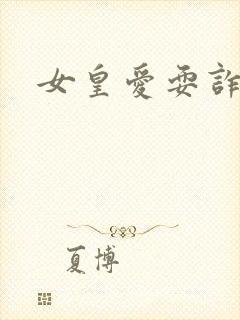 女皇愛耍詐
夏博